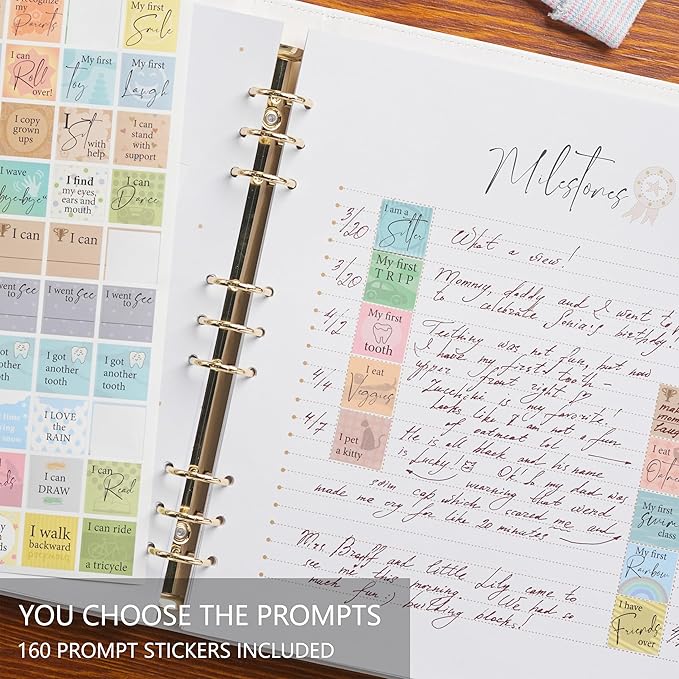 recognize
my
Parents
My first
Smile
I can
Roll
over!
My first
toy
My first
Laugh
I copy
grown
ups
I
Sit with
help
I can
stand
with
support
I wave
bye-bye
I find
my eyes,
ears and
mouth
I can
Dance
I can
I can
I went
to see
I went
to see
I went
to see
another
tooth
I got
another
tooth
I got
another
tooth
time
I LOVE
the
RAIN
I can
DRAW
I can
Read
I walk
backward
I can ride
a tricycle
Milestones
3/20
I am a
Sitter
What a view!
3/20
My first
TRIP
Mommy, daddy and I went to
to celebrate Sonia's birthday!
4/2
My first
tooth
Teething was not fun, but now
I have my first tooth -
upper front right
4/4
I eat
Veggies
Zucchini is my favorite!
Looks like I am not a fun
of oatmeal lol
4/7
I pet
a kitty
He is all black and his name
is Lucky! Oh! my dad was
wearning that weird
swim cap which scared me and
made me cry for like 20 minutes
Mrs. Braff and little Lily came to
see me this morning. We had so
much fun :) building blocks!
I eat
My first
swim
class
My first
Rainbow
I have
Friends
over
YOU CHOOSE THE PROMPTS
160 PROMPT STICKERS INCLUDED